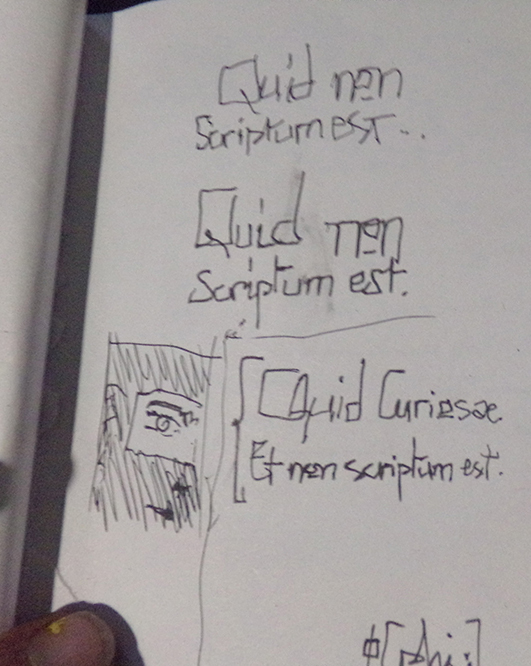 Quid non
Scriptum est...
Quid non
Scriptum est.
Quid Curiosae
Et non scriptum est.
ϕ[phi:]